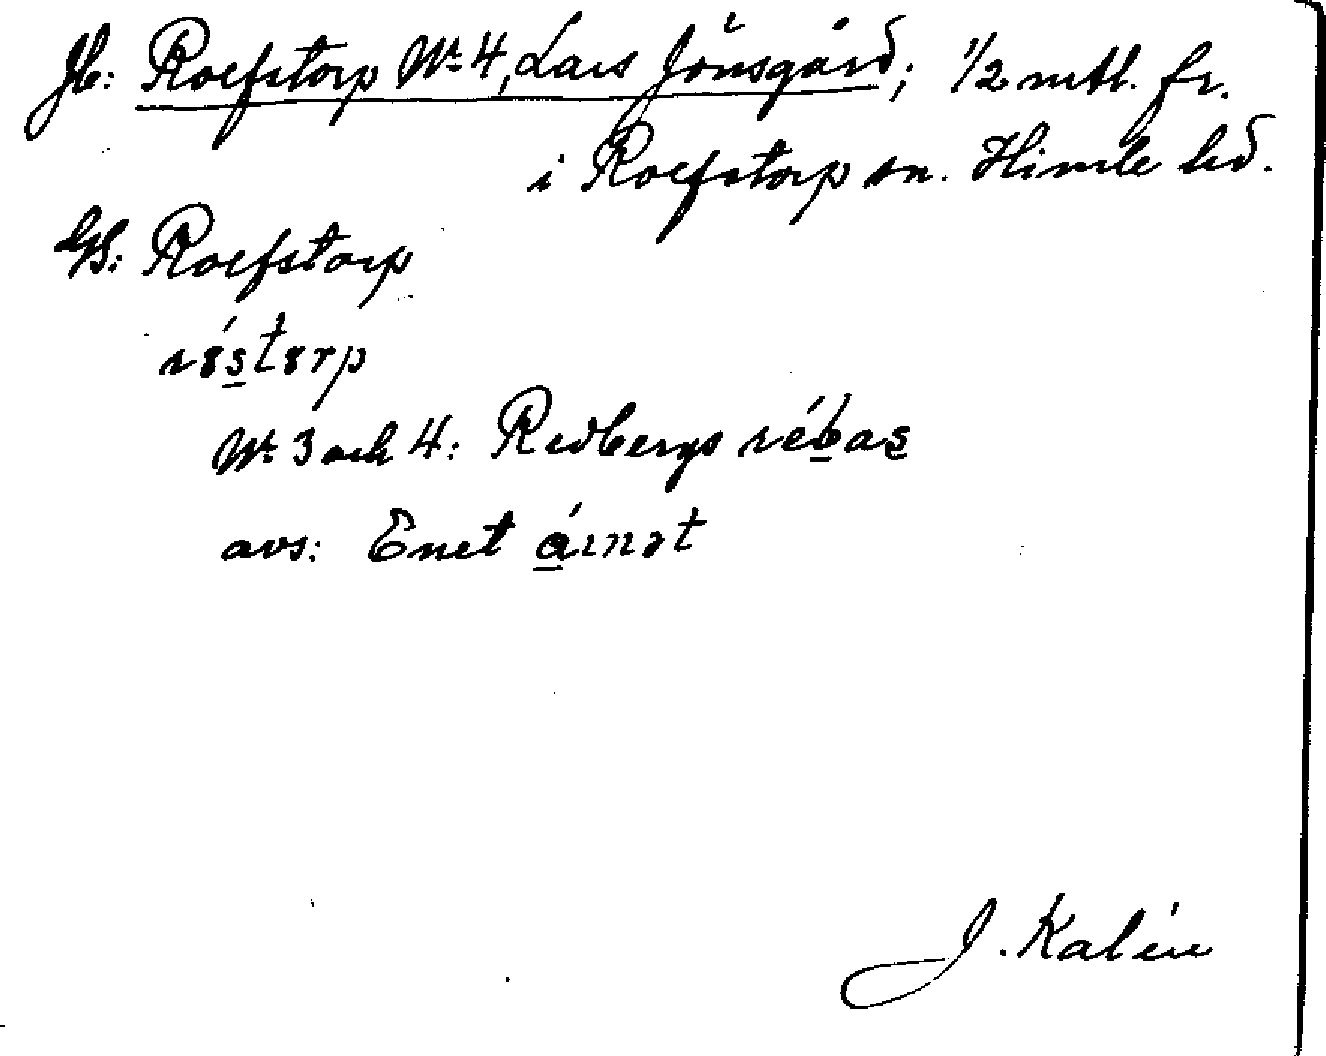 Jb: Rolfstorp Nr 4, Lars Jönsgård; 1/2 mtl. fr.
i Rolfstorp sn. Himle hd.
GS: Rolfstorp
Nr 3 och 4: Redbergs
avs: Enet
J. Kalén